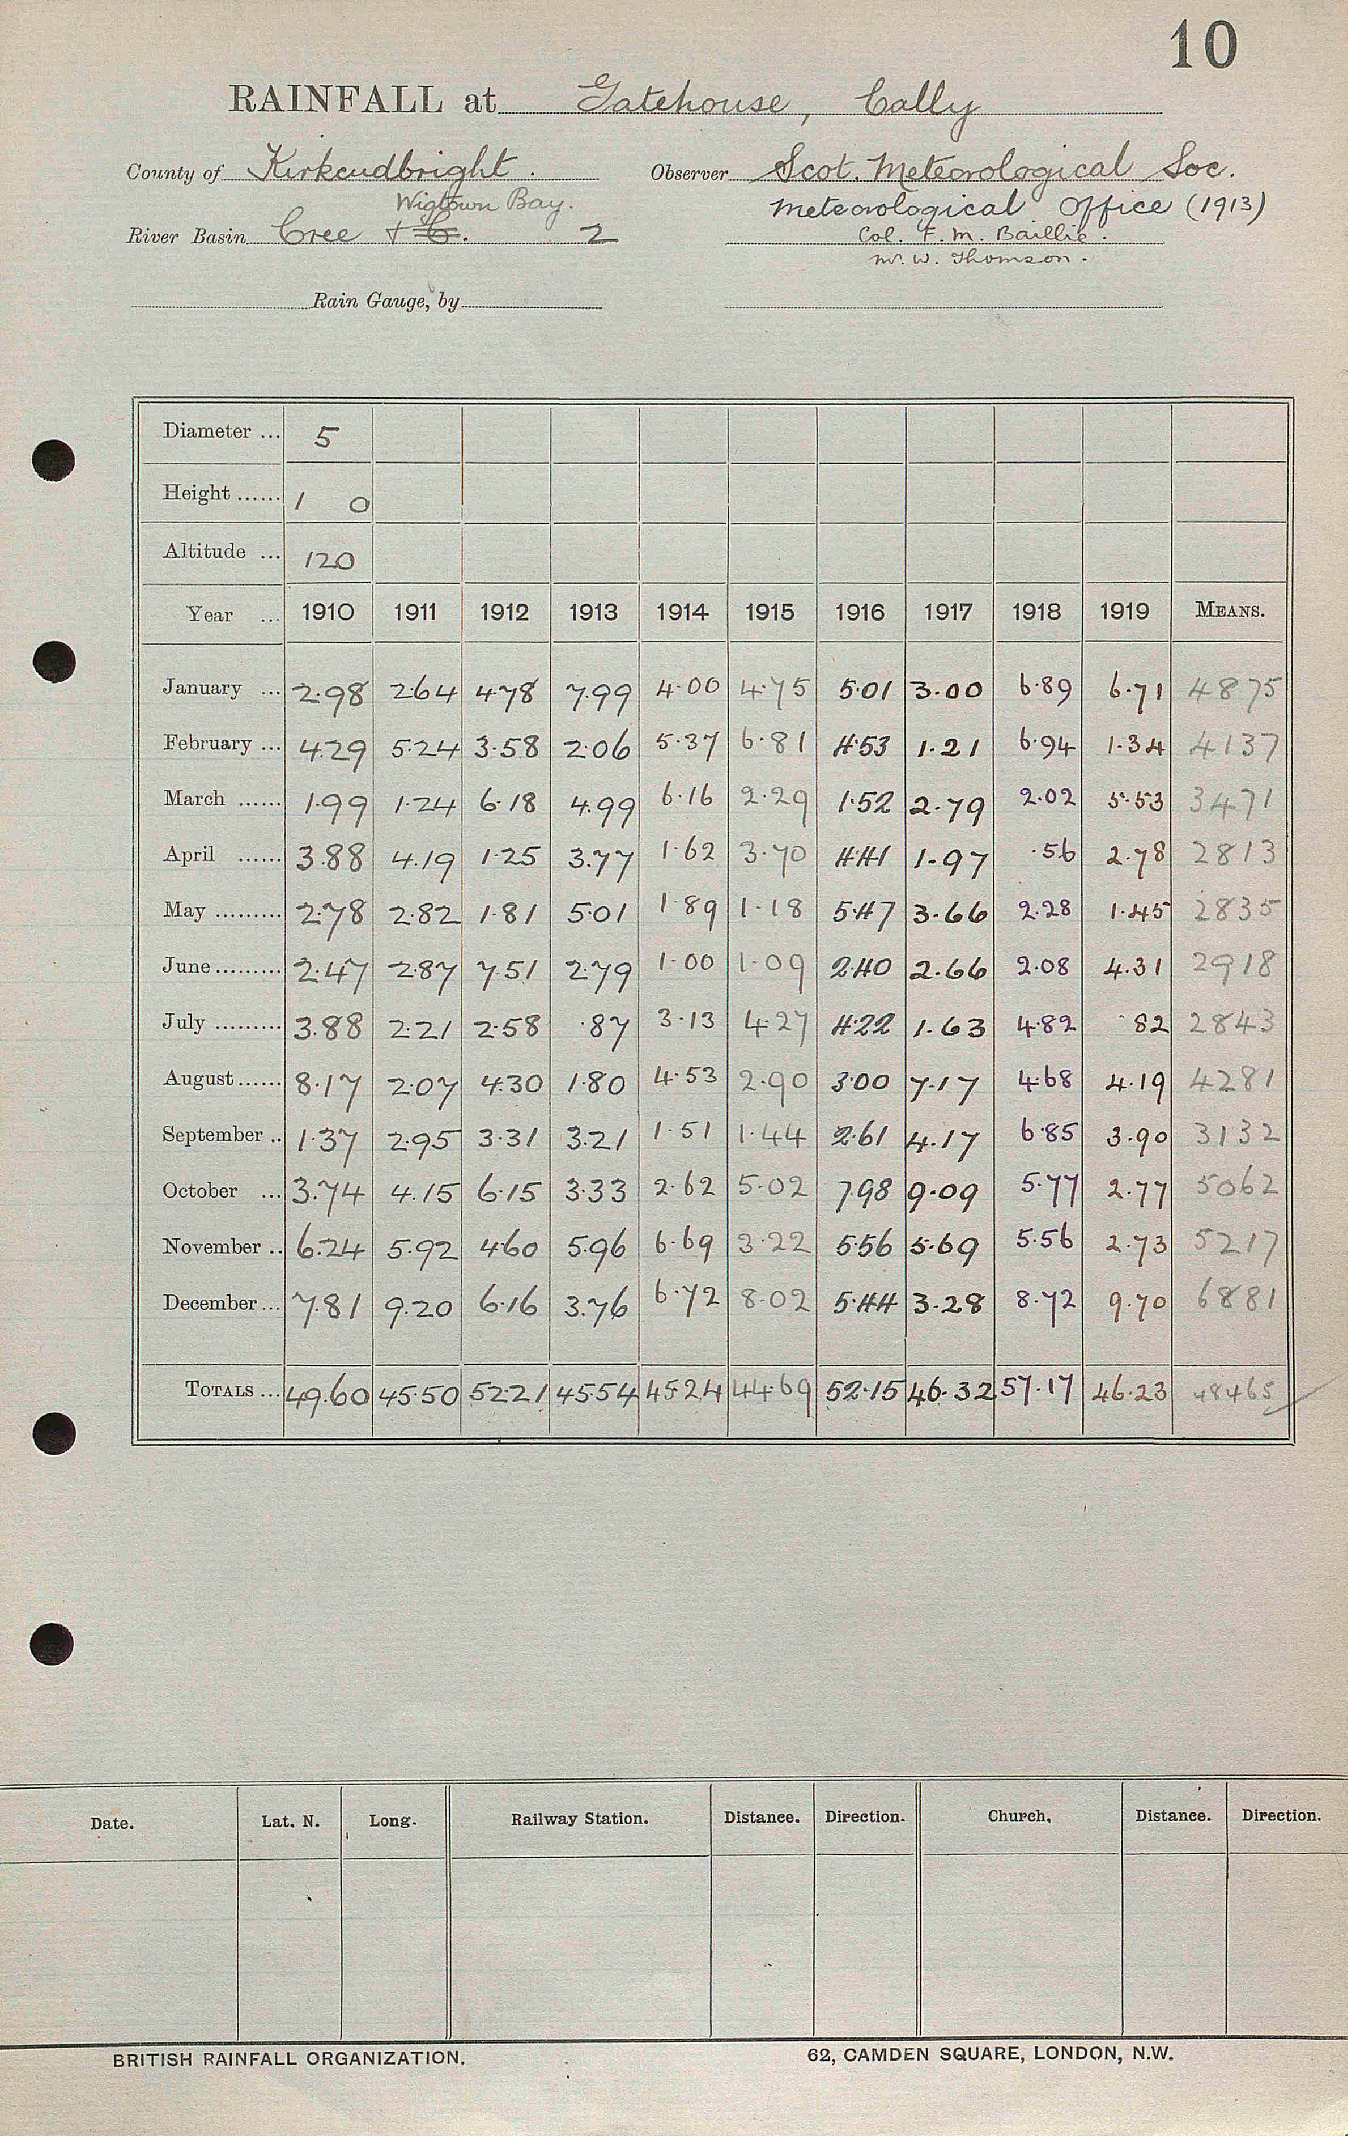 10
RAINFALL at Gatehouse, Cally
County of Kirkcudbright. Observer Scot. Meteorological Soc.
Wigtown Bay. Meteorological Office (1913)
River Basin Cree & 2 Col. F. M. Baillie.
Mr. W. Thomson.
Rain Gauge, by
Diameter ... 5
Height ...... 1 0
Altitude ... 120
Year ... 1910 1911 1912 1913 1914 1915 1916 1917 1918 1919 MEANS.
January ... 2.98 2.64 4.78 7.99 4.00 4.75 5.01 3.00 6.89 6.71 4875
February ... 4.29 5.24 3.58 2.06 5.37 6.81 4.53 1.21 6.94 1.34 4137
March ...... 1.99 1.24 6.18 4.99 6.16 2.29 1.52 2.79 2.02 5.53 3471
April ...... 3.88 4.19 1.25 3.77 1.62 3.70 4.41 1.97 .56 2.78 2813
May ......... 2.78 2.82 1.81 5.01 1.89 1.18 5.47 3.66 2.28 1.45 2835
June ......... 2.47 2.87 7.51 2.79 1.00 1.09 2.40 2.66 2.08 4.31 2918
July ......... 3.88 2.21 2.58 .87 3.13 4.27 4.22 1.63 4.82 .82 2843
August ...... 8.17 2.07 4.30 1.80 4.53 2.90 3.00 7.17 4.68 4.19 4281
September .. 1.37 2.95 3.31 3.21 1.51 1.44 2.61 4.17 6.85 3.90 3132
October ... 3.74 4.15 6.15 3.33 2.62 5.02 7.98 9.09 5.77 2.77 5062
November .. 6.24 5.92 4.60 5.96 6.69 3.22 5.56 5.69 5.56 2.73 5217
December ... 7.81 9.20 6.16 3.76 6.72 8.02 5.44 3.28 8.72 9.70 6881
TOTALS ... 49.60 45.50 52.21 45.54 45.24 44.69 52.15 46.32 57.17 46.23 48465
Date. Lat. N. Long. Railway Station. Distance. Direction. Church. Distance. Direction.
BRITISH RAINFALL ORGANIZATION. 62, CAMDEN SQUARE, LONDON, N.W.